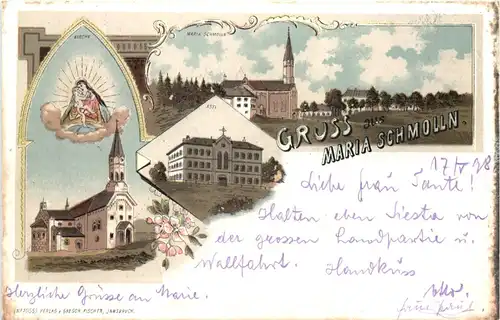 KIRCHE
MARIA SCHMOLLN
ASYL
GRUSS aus
MARIA SCHMOLLN.
17/V 98
Liebe Frau Tante!
Halten eben Siesta von
der grossen Landpartie u.
Wallfahrt. Handkuss
Otto.
Herzliche Grüsse an Marie.
VERLAG v. GRESCH, FISCHER, INNSBRUCK.